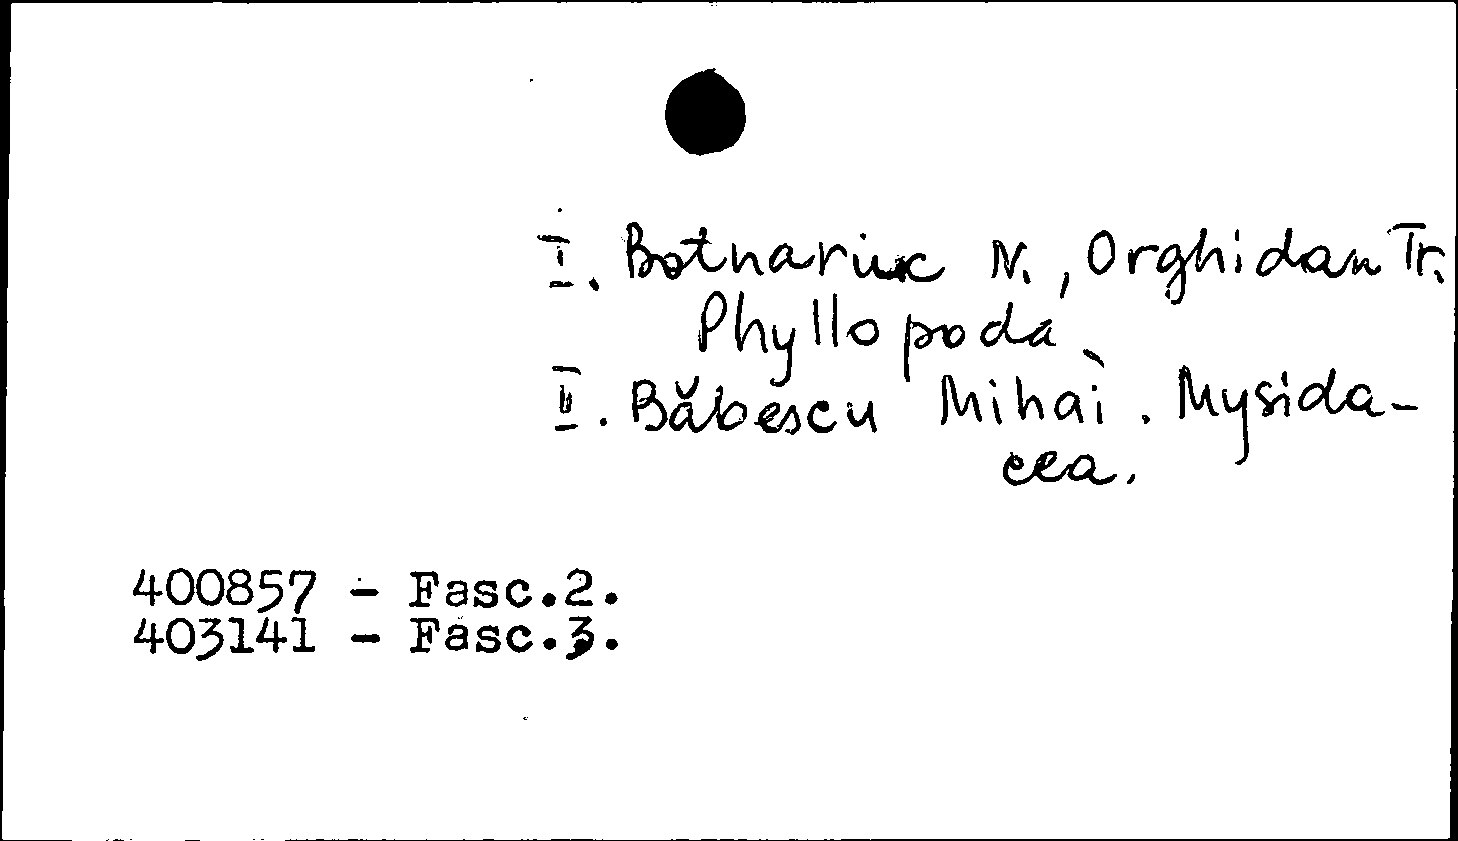 I. Botnariuc N., Orghidan Tr.
Phyllopoda
II. Băbescu Mihai. Mysida-
cea.
400857 - Fasc.2.
403141 - Fasc.3.